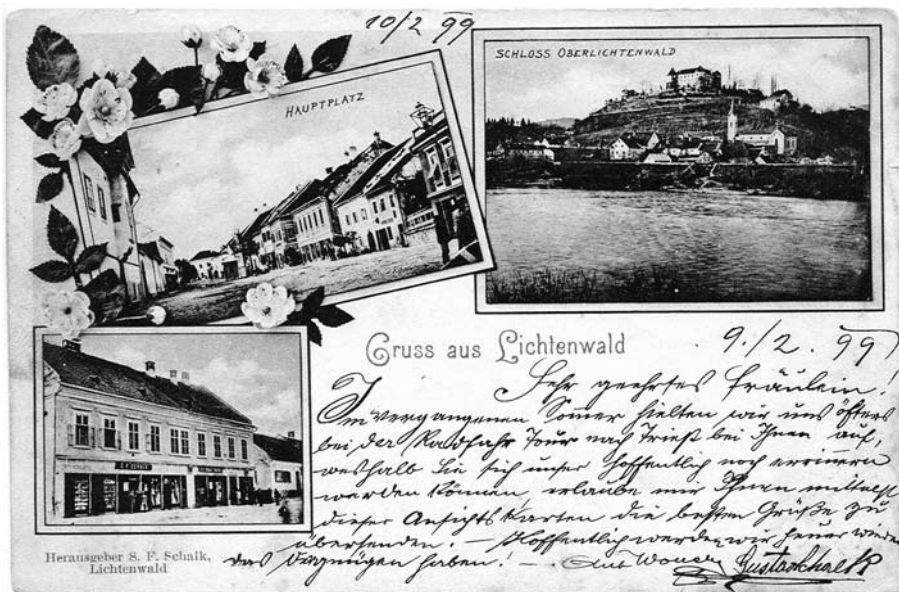 10/2 99
HAUPTPLATZ
SCHLOSS OBERLICHTENWALD
Gruss aus Lichtenwald
9./2. 99
Sehr geehrtes Fräulein!
Im vergangenen Somer hielten wir uns öfters
bei der Radfahr Tour nach Triest bei Ihnen auf,
weshalb Sie sich unser hoffentlich noch errinern
werden können, erlaube mir Ihnen mittelst
dieser Ansichtskarten die besten Grüße zu
übersenden. – Hoffentlich werden wir heuer wieder
das Vergnügen haben! –
Herausgeber S. F. Schalk,
Lichtenwald